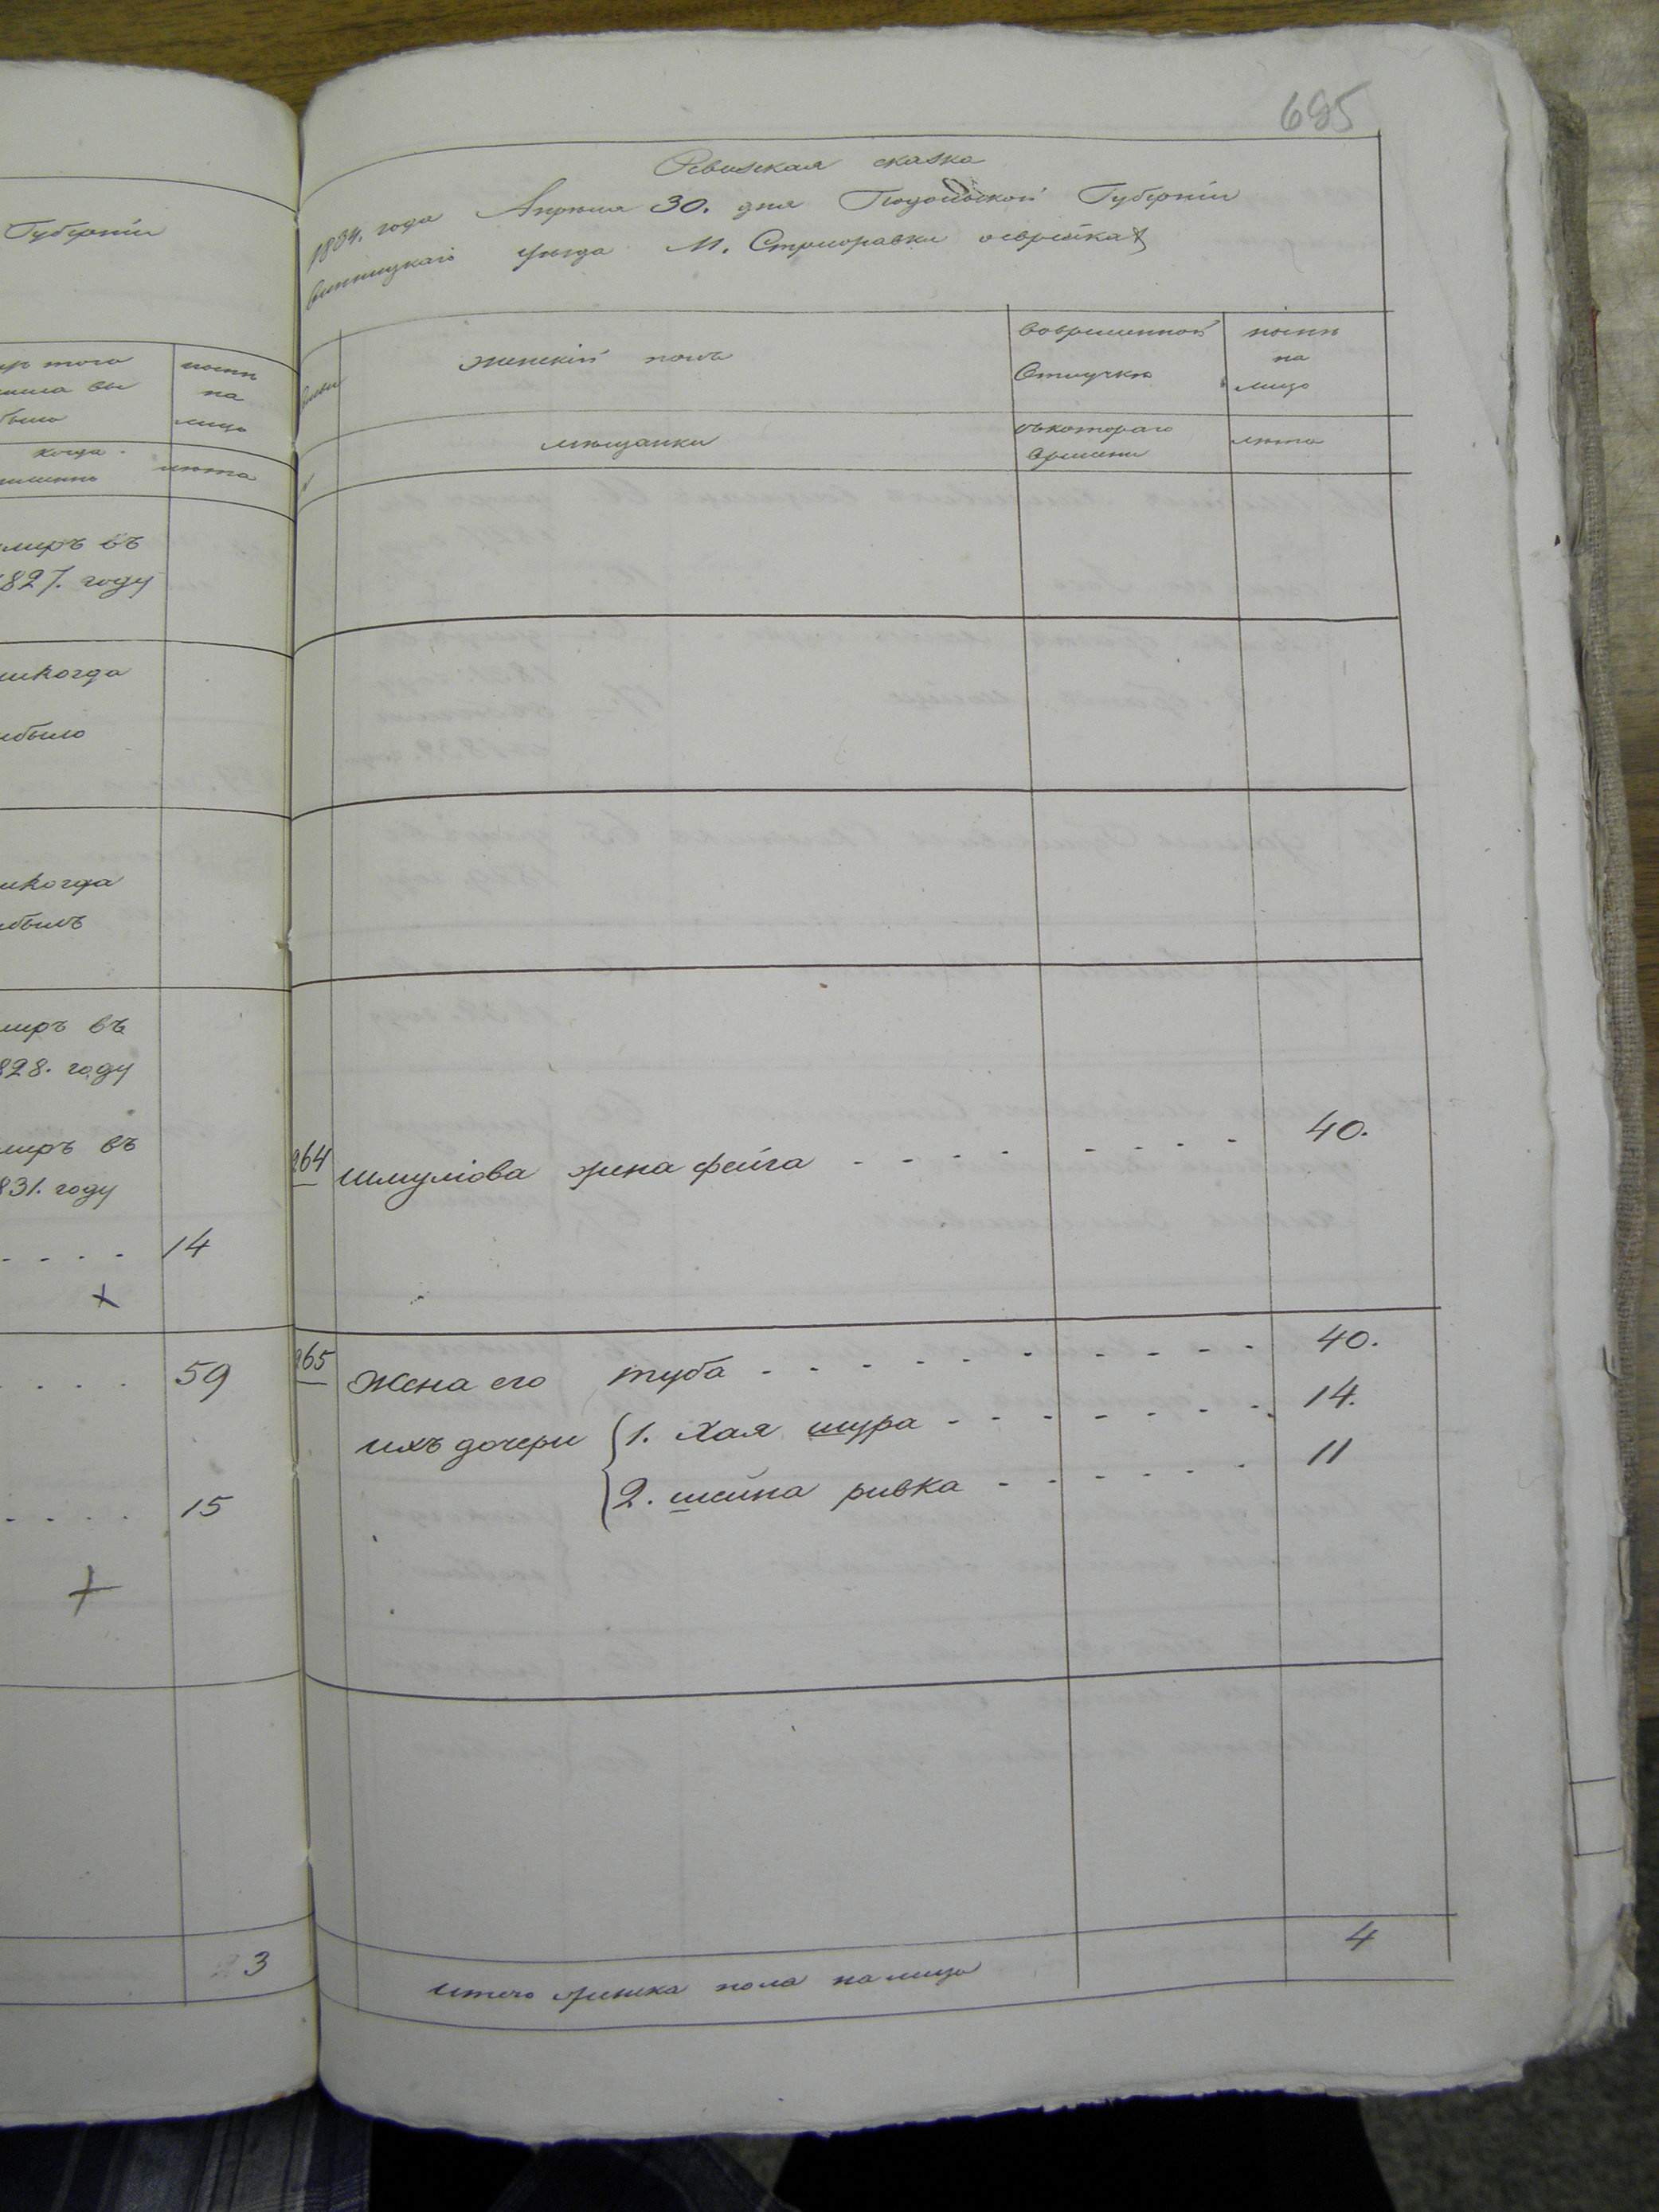 Губерніи
когда
лѣта
умиръ въ
1827. году
никогда
небыло
никогда
небылъ
умиръ въ
1828. году
умиръ въ
1831. году
14
59
15
3
695
Ревизская сказка
1834. года Апреля 30. дня Подольской Губерніи
винницкаго уѣзда М. Стрижавки оеврейкахъ
женскій полъ
вовременной
Отлучкѣ
нынѣ
на
лицо
мѣщанки
съкотораго
времени
лѣта
264 шмулїова жена фейга 40.
265 Жена его туба 40.
ихъ дочери 1. Хая шура 14.
2. шейна ривка 11
итого женска пола налицо 4